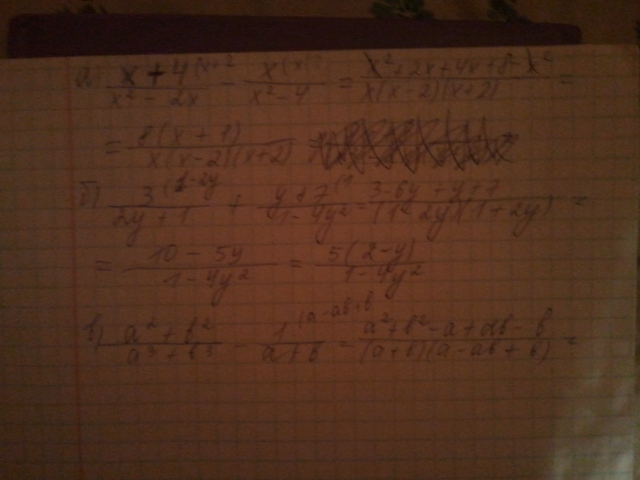 а) x + 4 (x+2 / x² - 2x - x (x / x² - 4 = x² + 2x + 4x + 8 - x² / x(x-2)(x+2) =
= (x + 1) / x(x-2)(x+2)
б) 3 (1-2y / 2y + 1 + y + 7 (1 / 1 - 4y² = 3-6y + y + 7 / (1 - 2y)(1 + 2y) =
= 10 - 5y / 1 - 4y² = 5(2-y) / 1 - 4y²
в) a² + b² / a³ + b³ - 1 (a-ab+b / a + b = a² + b² - a + ab - b / (a+b)(a-ab+b) =